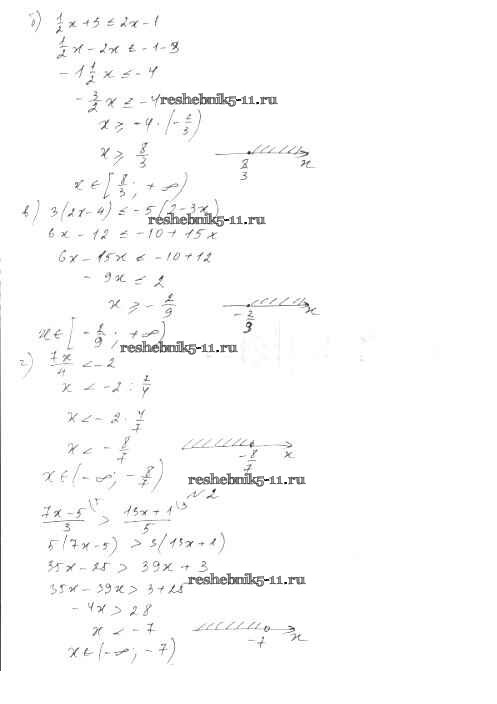 б) 1/2 x + 3 ≤ 2x - 1
1/2 x - 2x ≤ -1 - 3
- 1 1/2 x ≤ - 4
- 3/2 x ≤ - 4
reshebnik5-11.ru
x ≥ - 4 · (- 2/3)
x ≥ 8/3
8/3 x
x ∈ [8/3; + ∞)
в) 3(2x - 4) ≤ - 5(2 - 3x)
reshebnik5-11.ru
6x - 12 ≤ -10 + 15x
6x - 15x ≤ -10 + 12
- 9x ≤ 2
x ≥ - 2/9
- 2/9 x
x ∈ [- 2/9; + ∞)
reshebnik5-11.ru
г) 7x/4 < -2
x < -2 : 7/4
x < - 2 · 4/7
x < - 8/7
- 8/7 x
x ∈ (- ∞; - 8/7)
reshebnik5-11.ru
№2
7x - 5/3 \5 > 13x + 1/5 \3
5(7x - 5) > 3(13x + 1)
35x - 25 > 39x + 3
reshebnik5-11.ru
35x - 39x > 3 + 25
- 4x > 28
x < - 7
-7 x
x ∈ (- ∞; - 7)
reshebnik5-11.ru